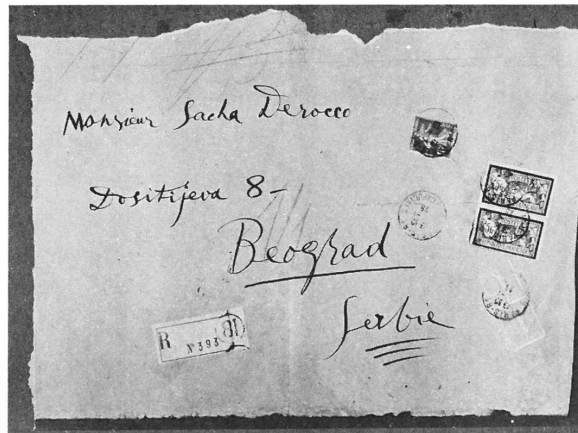 Monsieur Sacha Derocco
Dositijeva 8-
Beograd
Serbie
R
N° 393